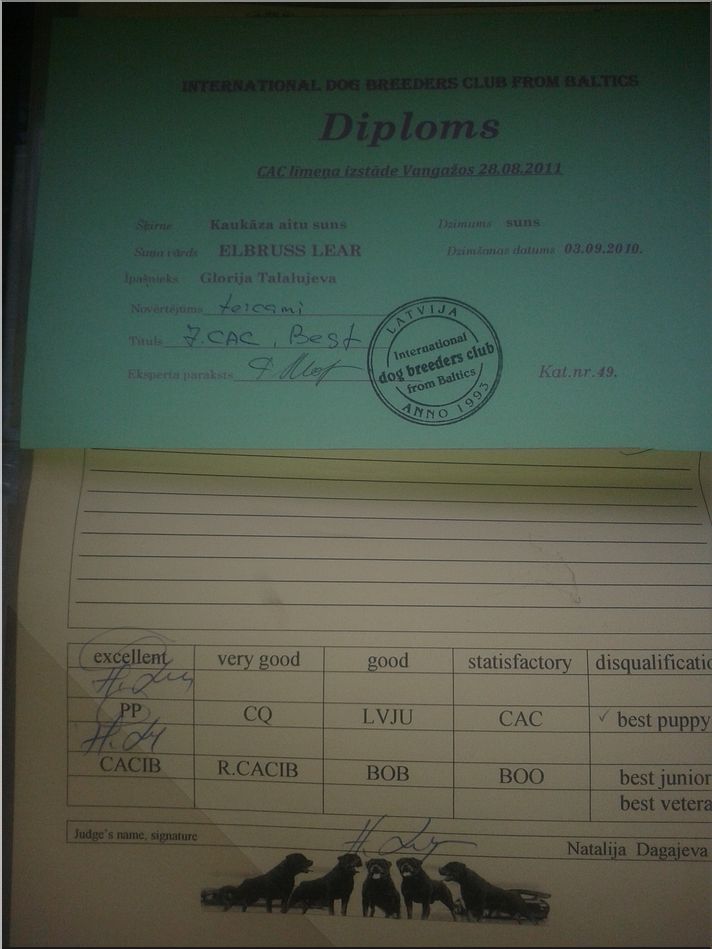 INTERNATIONAL DOG BREEDERS CLUB FROM BALTICS
Diploms
CAC līmeņa izstāde Vangažos 28.08.2011
Šķirne Kaukāza aitu suns Dzimums suns
Suņa vārds ELBRUSS LEAR Dzimšanas datums 03.09.2010.
Īpašnieks Glorija Talalujeva
Novērtējums teicami
Tituls J.CAC, Best
Eksperta paraksts
LATVIJA
International
dog breeders club
from Baltics
ANNO 1993
Kat.nr.49.
excellent very good good statisfactory disqualificatio
PP CQ LVJU CAC ✓ best puppy
CACIB R.CACIB BOB BOO best junior
best vetera
Judge's name, signature Natalija Dagajeva